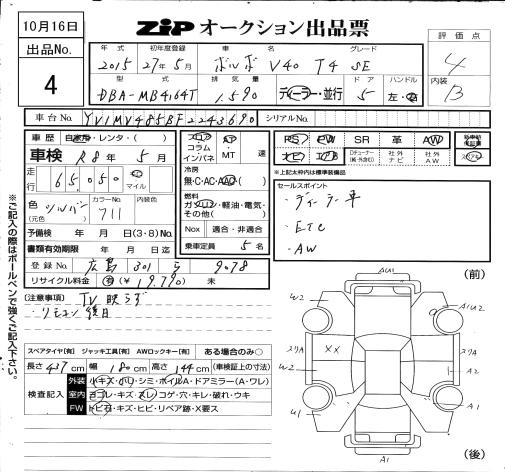 10月16日
ZIP オークション出品票
出品No.
4
評価点
4
内装
B
年式 初年度登録 車名 グレード
2015 27年5月 ボルボ V40 T4 SE
型式 排気量 ドア ハンドル
DBA-MB4164T 1.590 ディーラー・並行 5 左・右
車台No. YV1MV485BF2243690 シリアルNo.
車歴 自家用・レンタ・( )
車検 R8年 5月
走行 65,050 マイル
色 (元色) シルバー カラーNo. 711 内装色
予備検 年 月 日(3・8)No.
書類有効期限 年 月 日迄
登録No. 広島 301 ら 9078
リサイクル料金 有 ¥19,790 未
コラム インパネ
AT MT 速
冷房
無・C・AC・AAC
燃料
ガソリン・軽油・電気・その他( )
Nox 適合・非適合
乗車定員 5名
PS PW SR 革 AW
ナビ エアB Dチューナー 社外ナビ 社外AW
※上記太枠内は標準装備品
セールスポイント
・ディーラー車
・ETC
・AW
(注意事項) TV映らず
・リモコン後日
スペアタイヤ【有】 ジャッキ工具【有】 AWロックキー【有】 ある場合のみ○
長さ 437cm 幅 180cm 高さ 144cm (車検証上の寸法)
検査記入
外装 小キズ・凹リ・シミ・ボイルA・ドアミラー(A・ワレ)
室内 ヨゴレ・キズ・スレ・コゲ・穴・キレ・破れ・ウキ
FW トビ石・キズ・ヒビ・リペア跡・X要ス
※ご記入の際はボールペンで強くご記入下さい。
(前)
AU1
W2
A1U2
スリA
XX
スリA
W2
A2
U1
A1
A1
(後)